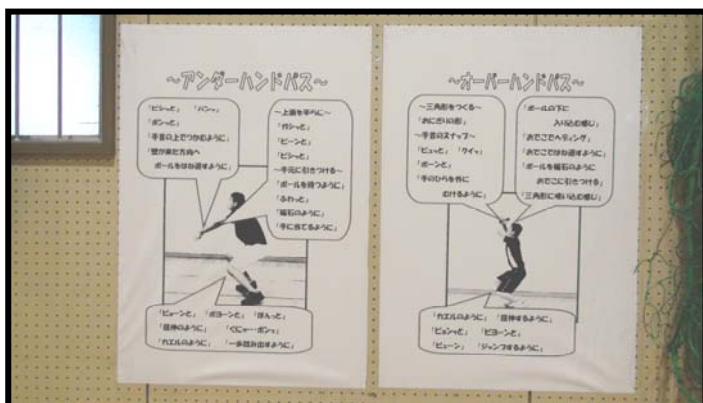 ～アンダーハンドパス～
「ビシッと」 「バシッ」
「ポンっと」
「手首の上でつかむように」
「壁が来た方向へ
ボールをはね返すように」
～上面を平らに～
「ガシっと」
「ピーンと」
「ビシっと」
～手元に引きつける～
「ボールを待つように」
「ふわっと」
「磁石のように」
「手に当てるように」
「ビューンと」 「ボヨーンと」 「ぽんっと」
「屈伸のように」 「ぐにゃ・・ポンッ」
「カエルのように」 「一歩踏み出すように」
～オーバーハンドパス～
～三角形をつくる～
「おにぎりの形」
～手首のスナップ～
「ピュっと」 「クイッ」
「ポーンと」
「手のひらを外に
むけるように」
「ボールの下に
入り込む感じ」
「おでこでヘディング」
「おでこではね返すように」
「ボールを磁石のように
おでこに引きつける」
「三角形に吸い込む感じ」
「カエルのように」 「屈伸するように」
「ピョンっと」 「ビヨーンと」
「ビューン」 「ジャンプするように」